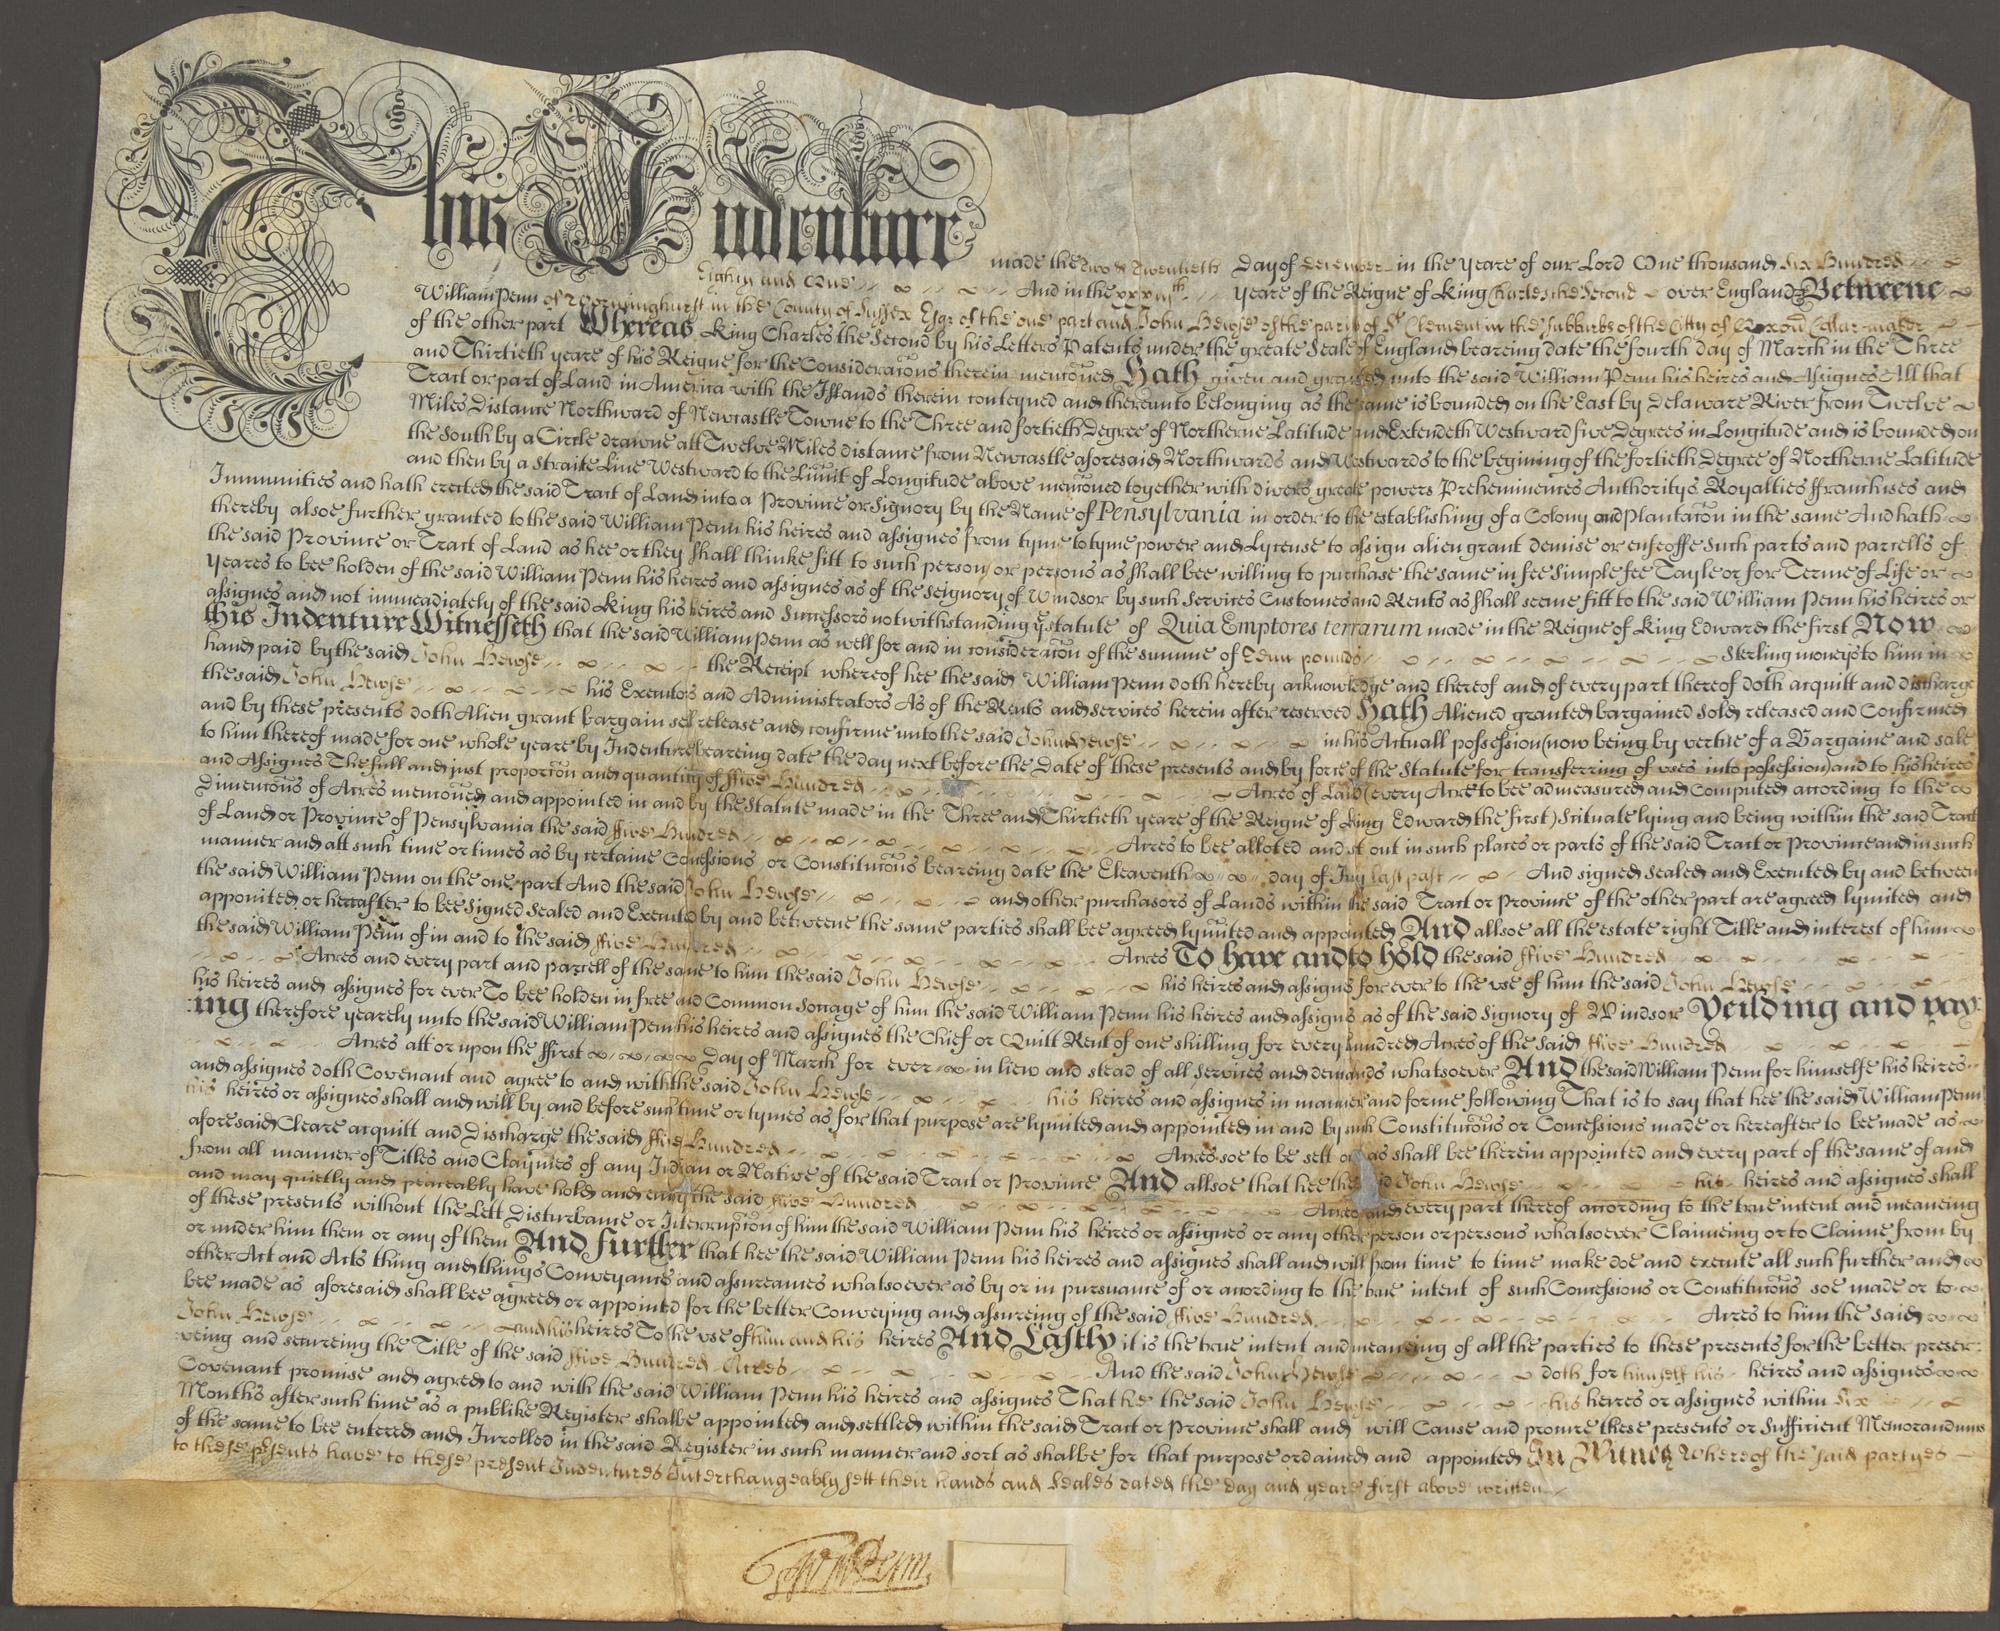 This Indenture made the two & Twentieth Day of December in the yeare of our Lord One thousand six Hundred
Eighty and One And in the xxxiijth yeare of the Reigne of King Charles the Second over England &c Betweene
William Penn of Worminghurst in the County of Sussex Esqr of the one part and John Hewse of the parish of St Clement in the subburbs of the Citty of Oxon Collar-maker
of the other part Whereas King Charles the Second by his Letters Patents under the greate Seale of England beareing date the fourth day of March in the Three
and Thirtieth yeare of his Reigne for the Consideratons therein mentoned Hath given and granted unto the said William Penn his heires and Assignes All that
Tract or part of Land in America with the Islands therein conteyned and thereunto belonging as the same is bounded on the East by Delaware River from Twelve
Miles Distance Northward of Newcastle Towne to the Three and fortieth Degree of Northerne Latitude and Extendeth Westward five Degrees in Longitude and is bounded on
the South by a Circle drawne att Twelve Miles distance from Newcastle aforesaid Northwards and Westwards to the begining of the fortieth Degree of Northerne Latitude
and then by a straite Line Westward to the Limit of Longitude above mentoned together with divers greate powers Preheminences Authoritys Royalties ffranchises and
Immunities and hath erected the said Tract of Land into a Province or Signory by the Name of Pensylvania in order to the establishing of a Colony and Plantaton in the same And hath
thereby alsoe further granted to the said William Penn his heires and assignes from tyme to tyme power and Lycense to assign alien grant demise or enfeoffe such parts and parcells of
the said Province or Tract of Land as hee or they shall thinke fitt to such person or persons as shall bee willing to purchase the same in fee Simple fee Tayle or for Terme of Life or
yeares to bee holden of the said William Penn his heires and assignes as of the seignory of Windsor by such Services Customes and Rents as shall seeme fitt to the said William Penn his heires or
assignes and not immeadiately of the said King his heires and Successors notwithstanding ye statute of Quia Emptores terrarum made in the Reigne of King Edward the first Now
this Indenture Witnesseth that the said William Penn as well for and in consideraton of the summe of Tenn pounds Sterling moneys to him in
hand paid by the said John Hewse the Receipt whereof hee the said William Penn doth hereby acknowledge and thereof and of every part thereof doth acquitt and discharge
the said John Hewse his Executors and Administrators As of the Rents and services herein after reserved Hath Aliened granted bargained sold released and Confirmed
and by these presents doth Alien grant bargain sell release and confirme unto the said John Hewse in his Actuall possession (now being by vertue of a Bargaine and sale
to him thereof made for one whole yeare by Indenture beareing date the day next before the Date of these presents and by force of the Statute for transferring of uses into possession) and to his heires
and Assignes The full and just proporton and quantity of ffive Hundred Acres of Land (every Acre to bee admeasured and Computed according to the
Dimentons of Acres mentoned and appointed in and by the Statute made in the Three and Thirtieth yeare of the Reigne of King Edward the first) Scituate lying and being within the said Tract
of Land or Province of Pensylvania the said ffive Hundred Acres to bee alloted and set out in such places or parts of the said Tract or Province and in such
manner and att such time or times as by certaine Concessions or Constitutons beareing date the Eleaventh day of July last past And signed Sealed and Executed by and between
the said William Penn on the one part And the said John Hewse and other purchasors of Lands within the said Tract or Province of the other part are agreed lymited and
appointed or hereafter to bee Signed Sealed and Executed by and betweene the same parties shall bee agreed lymited and appointed And allsoe all the estate right Title and interest of him
the said William Penn of in and to the said ffive Hundred Acres To have and to hold the said ffive Hundred
Acres and every part and parcell of the same to him the said John Hewse his heires and assignes for ever to the use of him the said John Hewse
his heires and assignes for ever To bee holden in free and Common Soccage of him the said William Penn his heires and assignes as of the said Signory of Windsor Yeilding and pay-
:ing therefore yearely unto the said William Penn his heires and assignes the Chief or Quitt Rent of one shilling for every hundred Acres of the said ffive Hundred
Acres att or upon the ffirst Day of March for ever in liew and stead of all services and demands whatsoever And the said William Penn for himselfe his heires
and assignes doth Covenant and agree to and with the said John Hewse his heires and assignes in manner and forme following That is to say that hee the said William Penn
his heires or assignes shall and will by and before such time or tymes as for that purpose are lymited and appointed in and by such Constitutons or Concessions made or hereafter to bee made as
aforesaid Cleare acquitt and Discharge the said ffive Hundred Acres soe to be sett out as shall bee therein appointed and every part of the same of and
from all manner of Titles and Claymes of any Indian or Native of the said Tract or Province And allsoe that hee the said John Hewse his heires and assignes shall
and may quietly and peaceably have hold and enjoy the said ffive Hundred Acres and every part thereof according to the true intent and meaneing
of these presents without the Lett Disturbance or Interrupton of him the said William Penn his heires or assignes or any other person or persons whatsoever Claimeing or to Claime from by
or under him them or any of them And further that hee the said William Penn his heires and assignes shall and will from time to time make doe and execute all such further and
other Act and Acts thing and things Conveyances and assureances whatsoever as by or in pursuance of or according to the true intent of such Concessions or Constitutons soe made or to
bee made as aforesaid shall bee agreed or appointed for the better Conveying and assureing of the said ffive Hundred Acres to him the said
John Hewse and his heires To the use of him and his heires And Lastly it is the true intent and meaneing of all the parties to these presents for the better preser:
:veing and secureing the Title of the said ffive Hundred Acres And the said John Hewse doth for himself his heires and assignes
Covenant promise and agree to and with the said William Penn his heires and assignes That he the said John Hewse his heires or assignes within six
Months after such time as a publike Register shalbe appointed and settled within the said Tract or Province shall and will Cause and procure these presents or Sufficient Memorandums
of the same to bee entered and Inrolled in the said Register in such manner and sort as shalbe for that purpose ordained and appointed In Witnes Whereof the said partyes
to these psents have to these present Indentures Interchangeably sett their hands and Seales dated the day and yeare first above written
Wm Penn